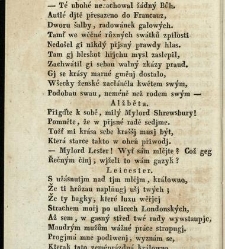 — Té ubohé nezachowal žádný Běh.
Autlé dítě přesazeno do Francauz,
Dworu šalby, radowánek galowých.
Tamť we wěčné různých swátků zpilosti
Nedošel gi nikdý pjsný prawdy hlas.
Tam gj blesknt hřjchu mysl zaslepil,
Zachwátil gi sebau walný zkázy praud.
Gj se krásy marné gměnj dostalo,
Wšecky ženské zacházela kwětem swým,
Podobau swau, neméně než rodem swým —
Alžběta.
Přigďte k sobě, milý Mylord Shrewsbury!
Pomněte, že w přjsné radě sedjme.
Tuť mi krása sebe krášlj masý být,
Která starce takto w oheň přiwodj.
— Mylord Lester! Wyť sám mlčjte? Což geg
Řečným činj; wjželi to wám gazyk?
Leicester.
S užásnutjm nad tjm mlčjm, králowno,
Že ti hrůzau naplňugj uši twých;
Že ty bugky, které luzu wěřjcj
Strachem mojj po uljcech Londonských,
Až sem, w gasný střed twé rady wystaupjc,
Moudrým mužům wážné práce stropugj,
Progjmá mne podiwenj, wyznám se,